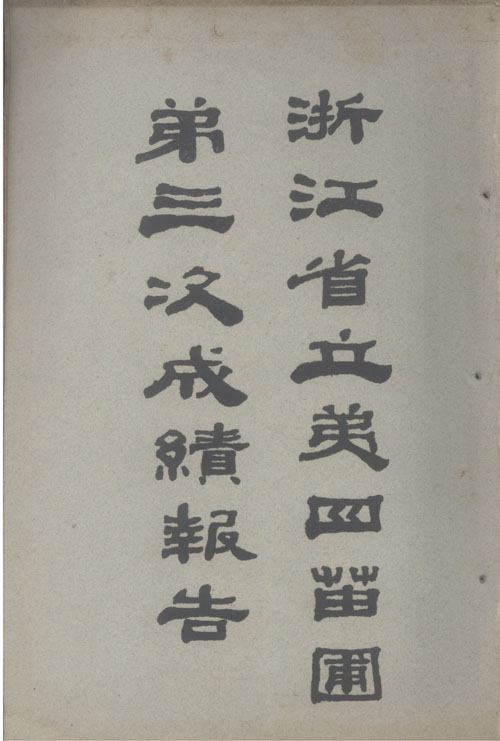 浙江省立弟四苗圃
弟三次成績報告